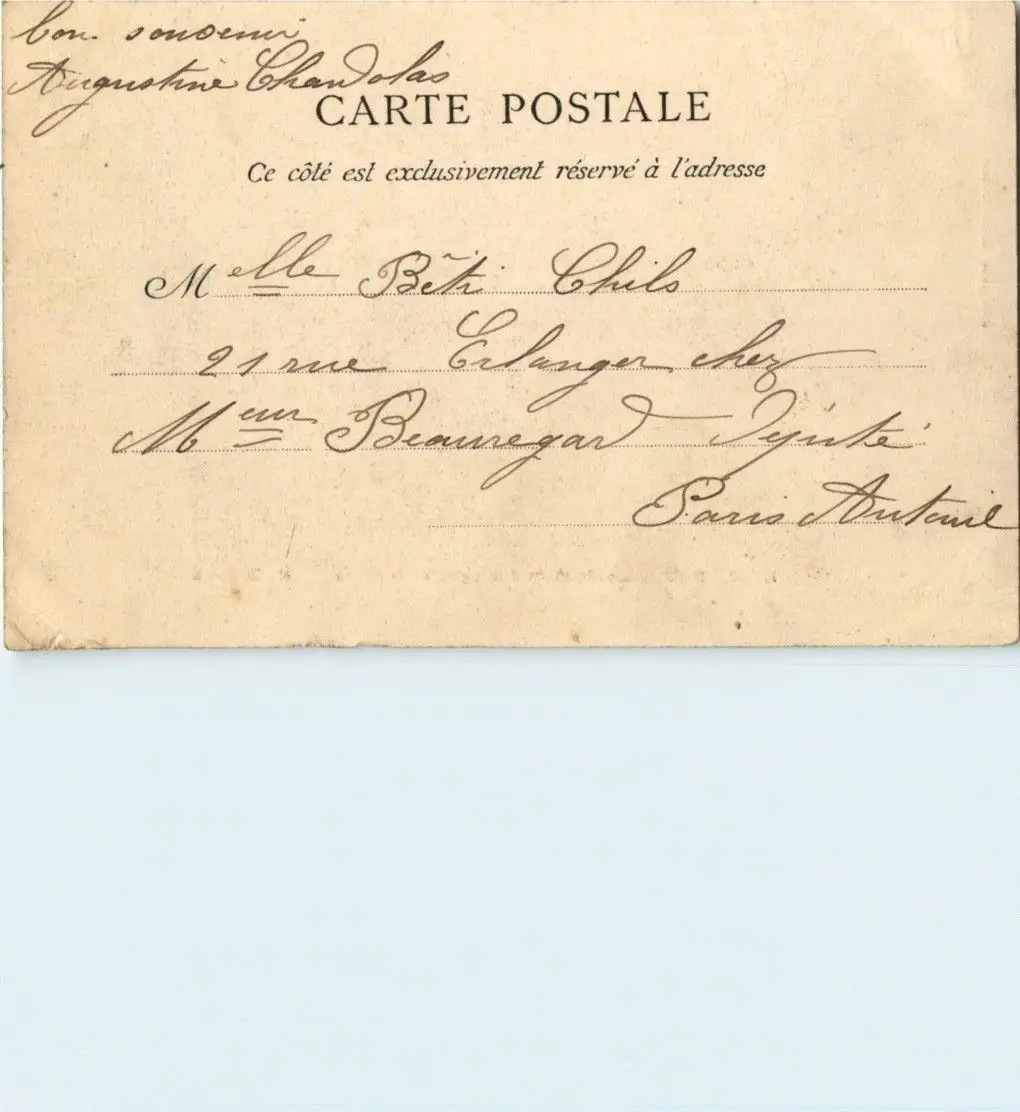 bon souvenir
Augustine Chandolas
CARTE POSTALE
Ce côté est exclusivement réservé à l'adresse
Melle Bêti Chils
21 rue Erlanger chez
Meur Beauregard Député
Paris Auteuil